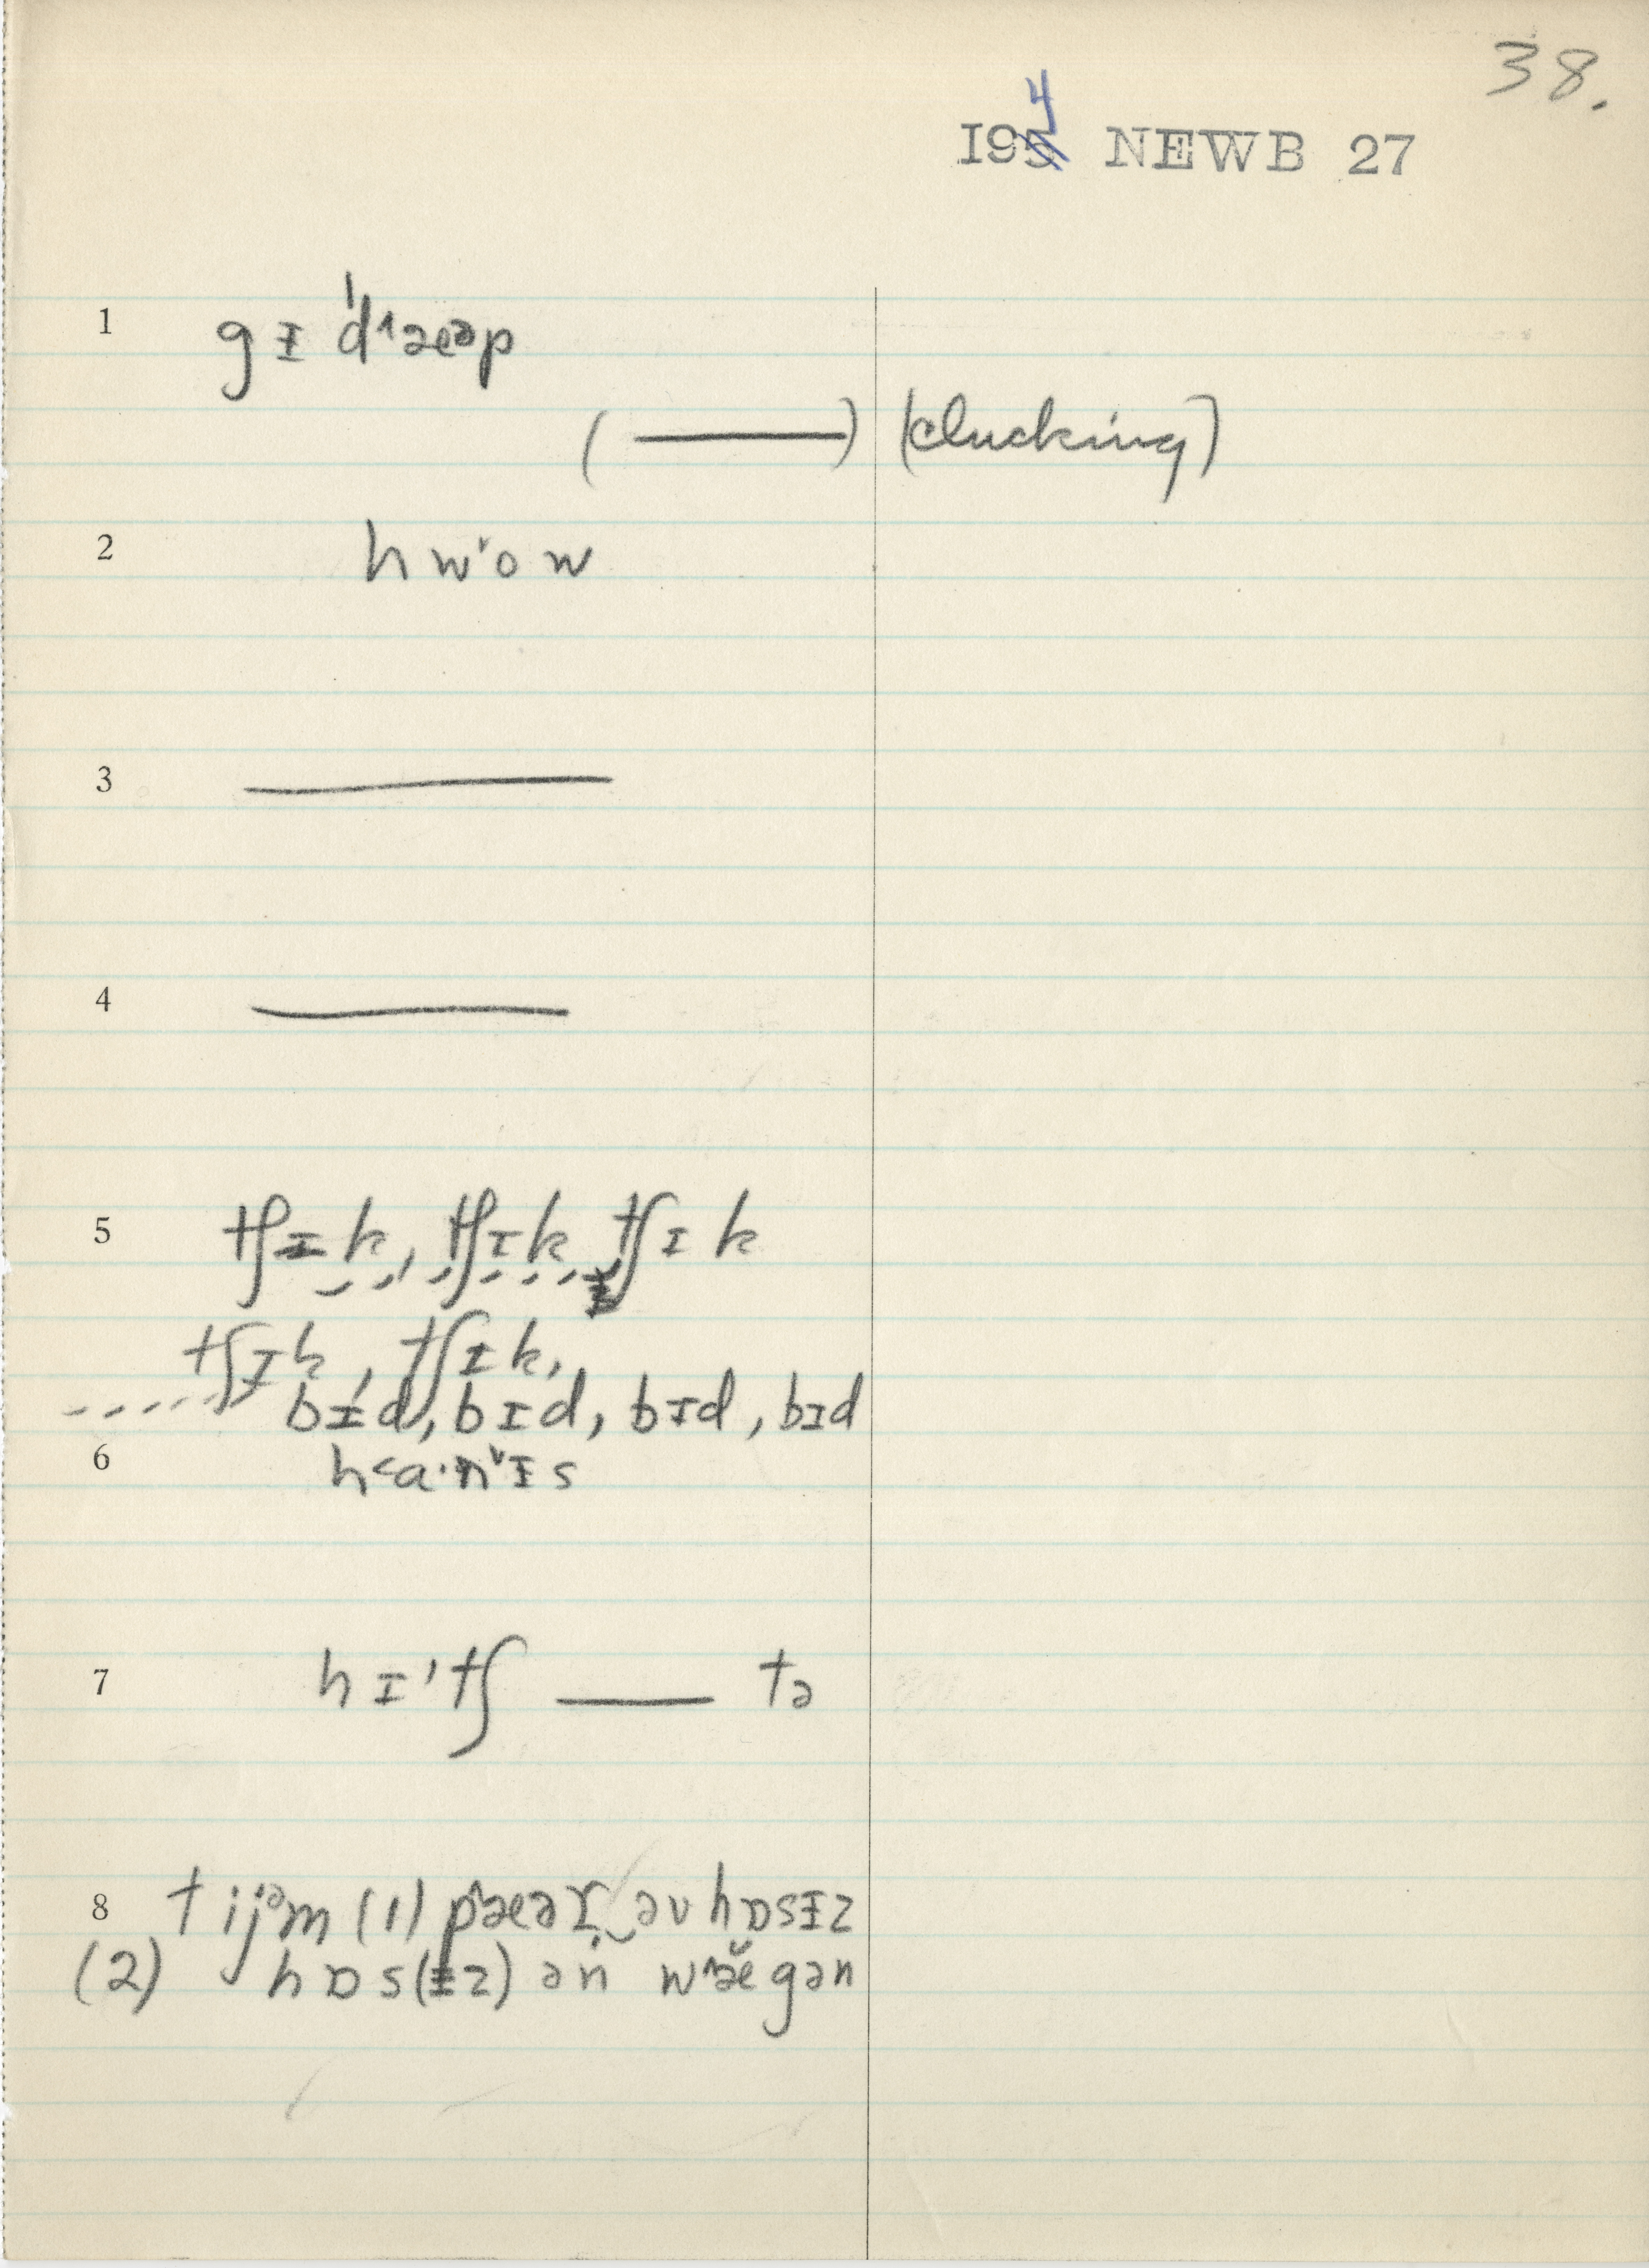 38.
4
195 NEWB 27
1 gɪ ˈd˄æᵊp
( —— ) (clucking)
2 hw˅ow
3 ——
4 ——
5 tʃɪk, tʃɪk, tʃɪk
tʃɪk, tʃɪk,
bɪd, bɪd, bɪd, bɪd
6 h˂a·n˅ɪs
7 hɪ'tʃ —— tə
8 tijᵊm (1) p˄æəɾ‿əv hɒsɪz
(2) hɒs(ɪz) ən w˄æ̆gən